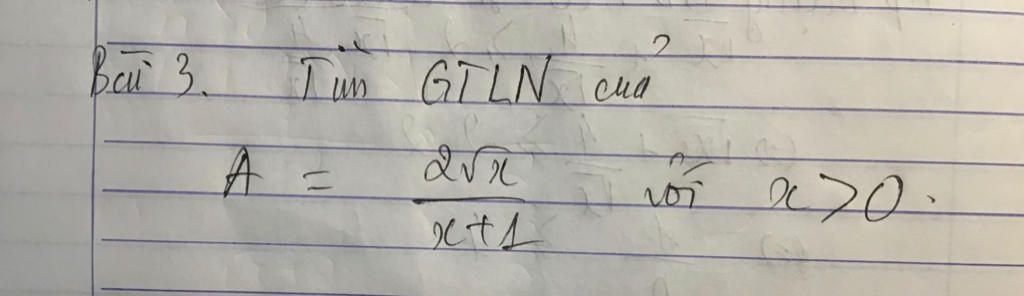 Bài 3. Tìm GTLN của
A = 2√x / x+1 với x > 0.